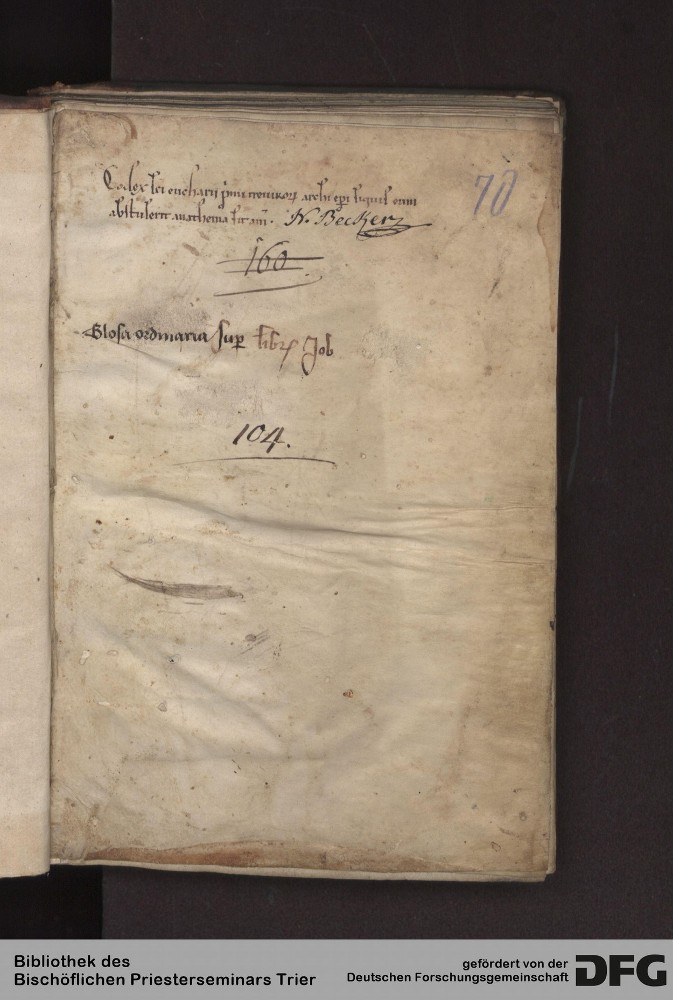 Codex sci eucharii primi treuirorum archiepi siquis eum
abstulerit anathema sit am. N. Becker
70
160
Glosa ordinaria sup libr Job
104.
Bibliothek des
Bischöflichen Priesterseminars Trier
gefördert von der
Deutschen Forschungsgemeinschaft
DFG